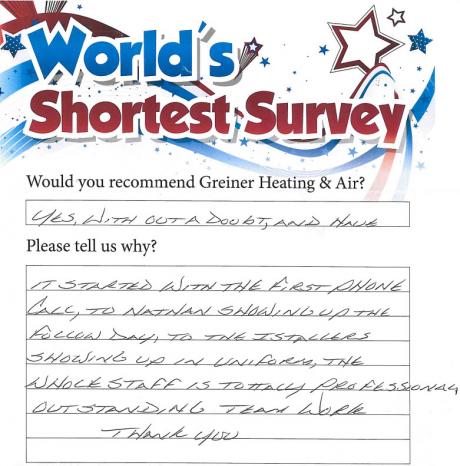 World's
Shortest Survey
Would you recommend Greiner Heating & Air?
YES, WITH OUT A DOUBT, AND HAVE
Please tell us why?
IT STARTED WITH THE FIRST PHONE
CALL, TO NATHAN SHOWING UP THE
FOLLOW DAY, TO THE ISTALLERS
SHOWING UP IN UNIFORM, THE
WHOLE STAFF IS TOTTALY PROFESSIONAL
OUTSTANDING TEAM WORK
THANK YOU